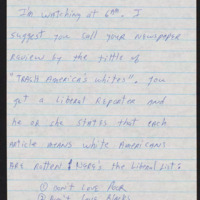 I'm watching at 6th. I
suggest you call your newspaper
review by the tittle of
"TRASH America's whites". You
got a Liberal Reporter and
he or she states that each
article means white Americans
are rotten &
the Liberal List:
① Don't Love Poor
② Don't Love Blacks